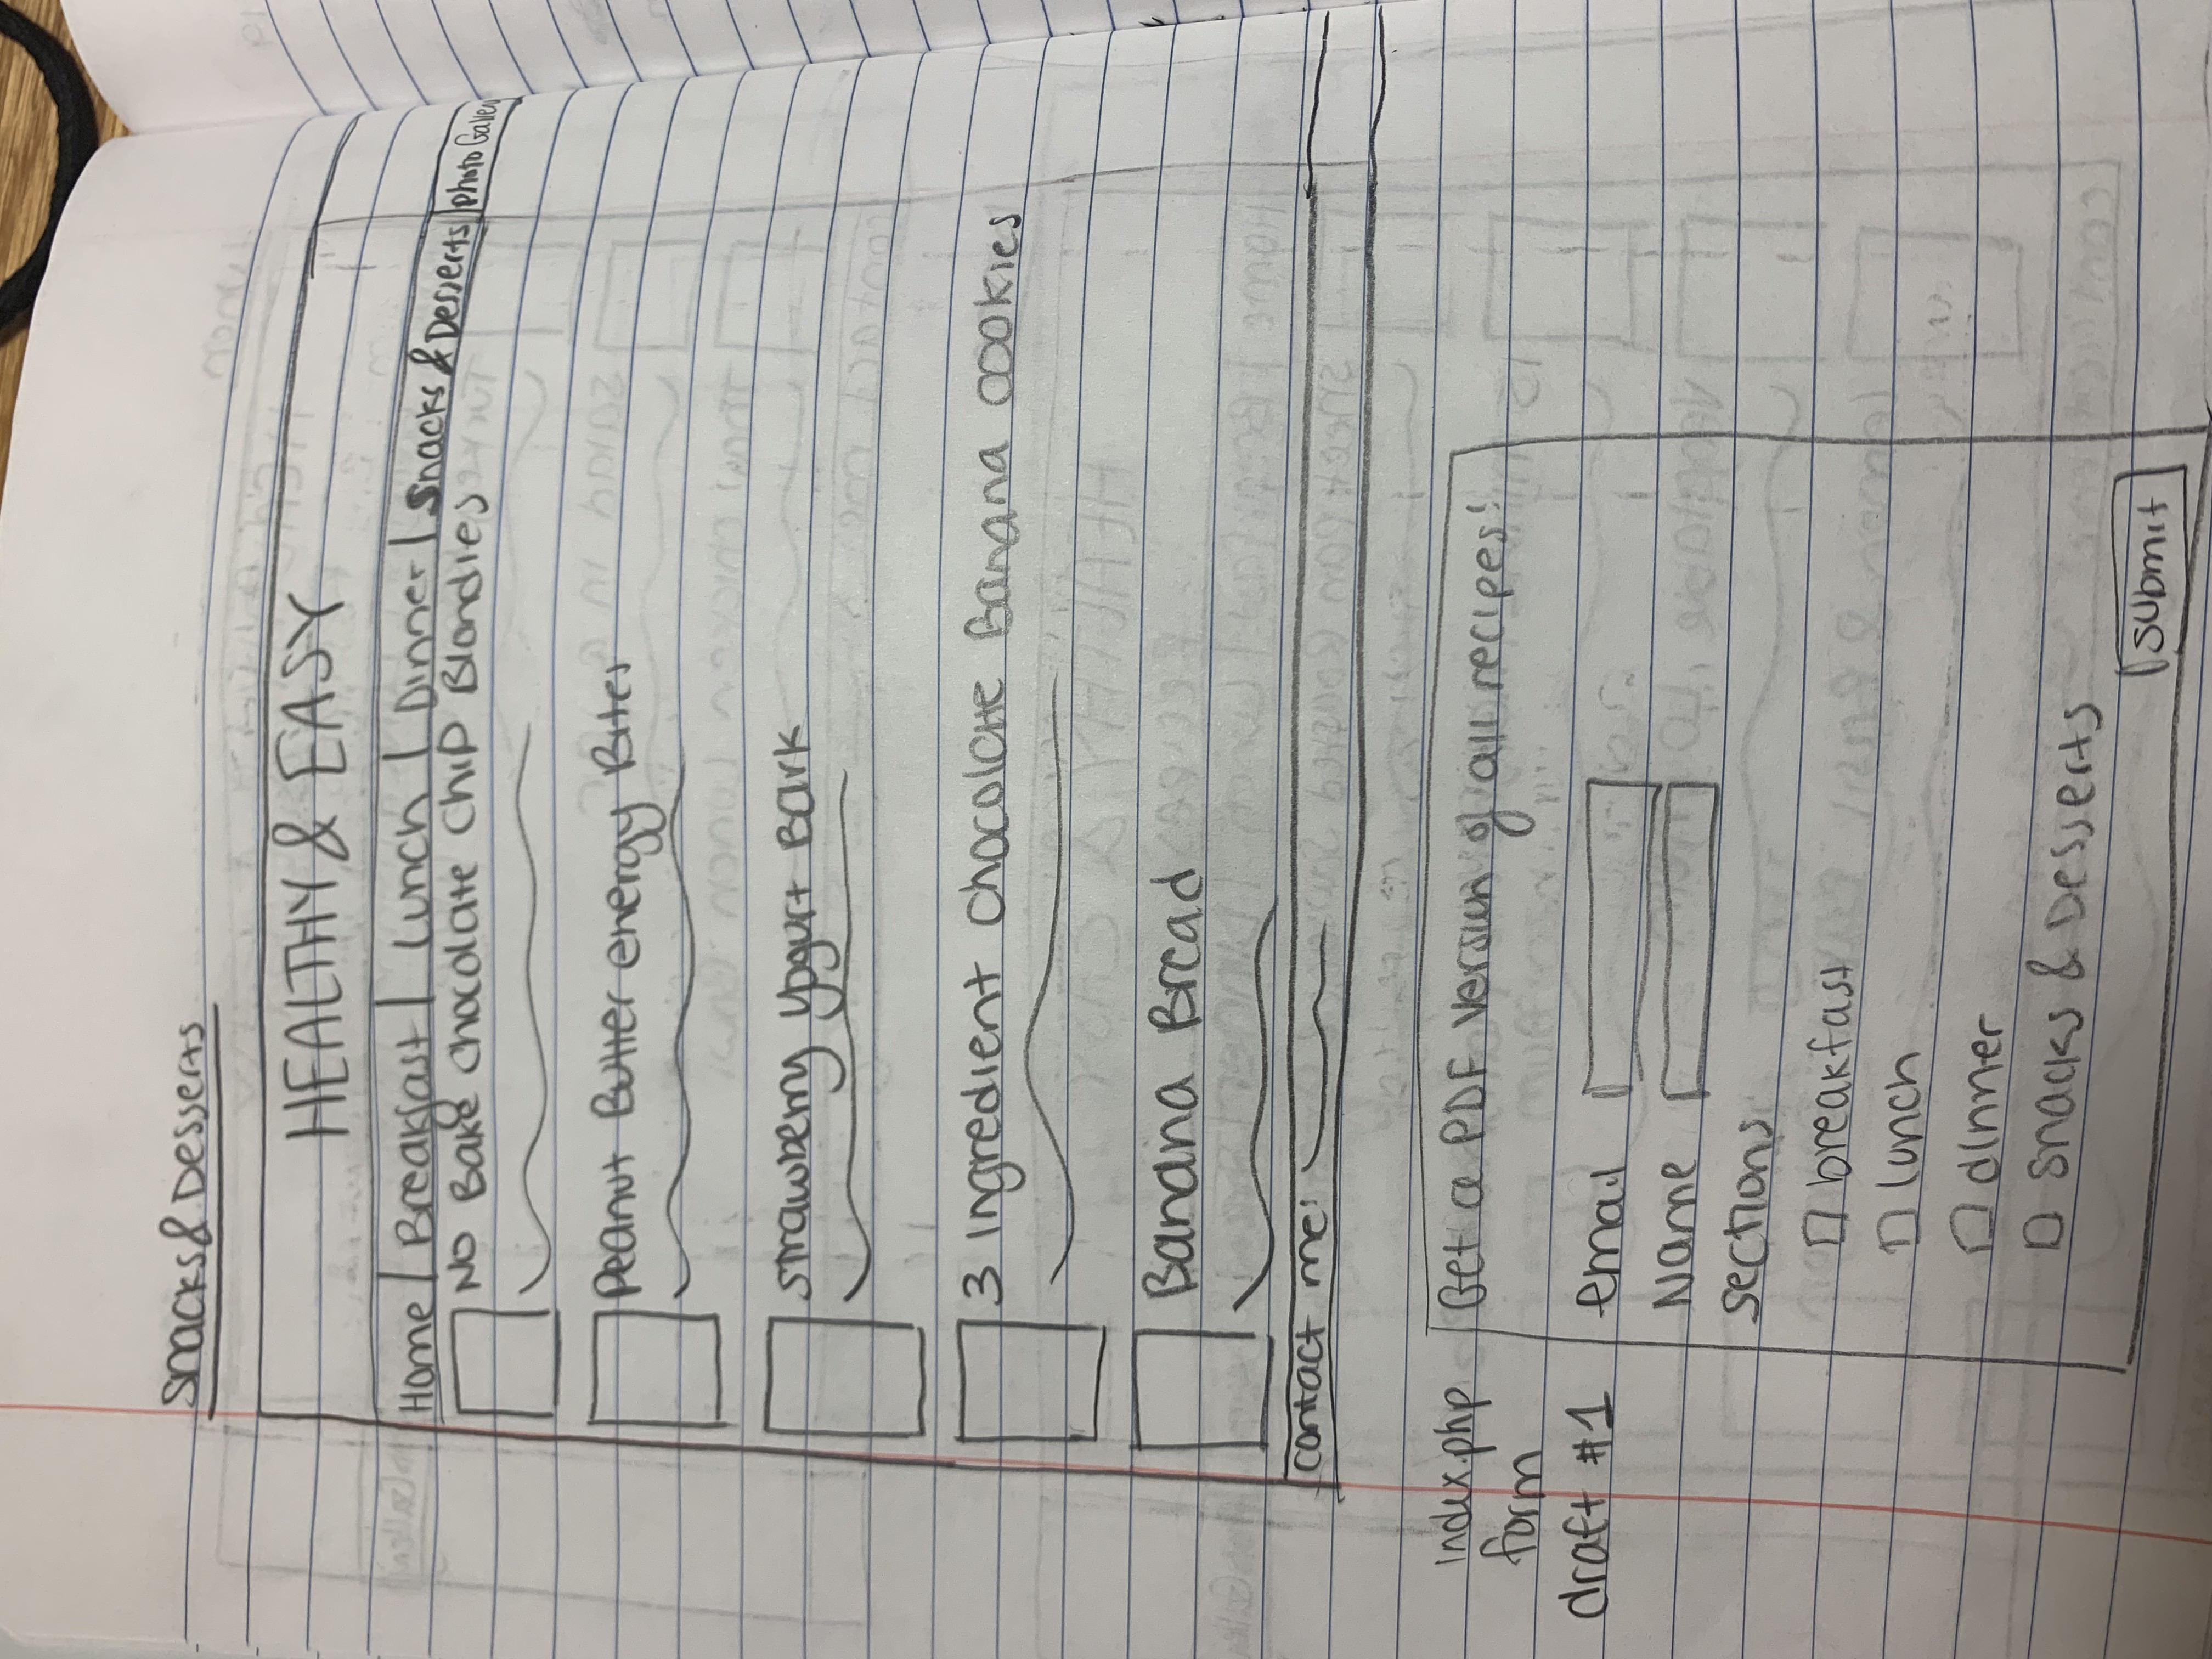 Snacks & Desserts
HEALTHY & EASY
Home | Breakfast | Lunch | Dinner | Snacks & Desserts | photo Gallery
No Bake Chocolate Chip Blondies
Peanut Butter energy Bites
Strawberry Yogurt Bark
3 Ingredient Chocolate Banana Cookies
Banana Bread
contact me:
index.php
form
draft #1
Get a PDF version of all recipes!
email
Name
sections
breakfast
lunch
dinner
Snacks & Desserts
submit